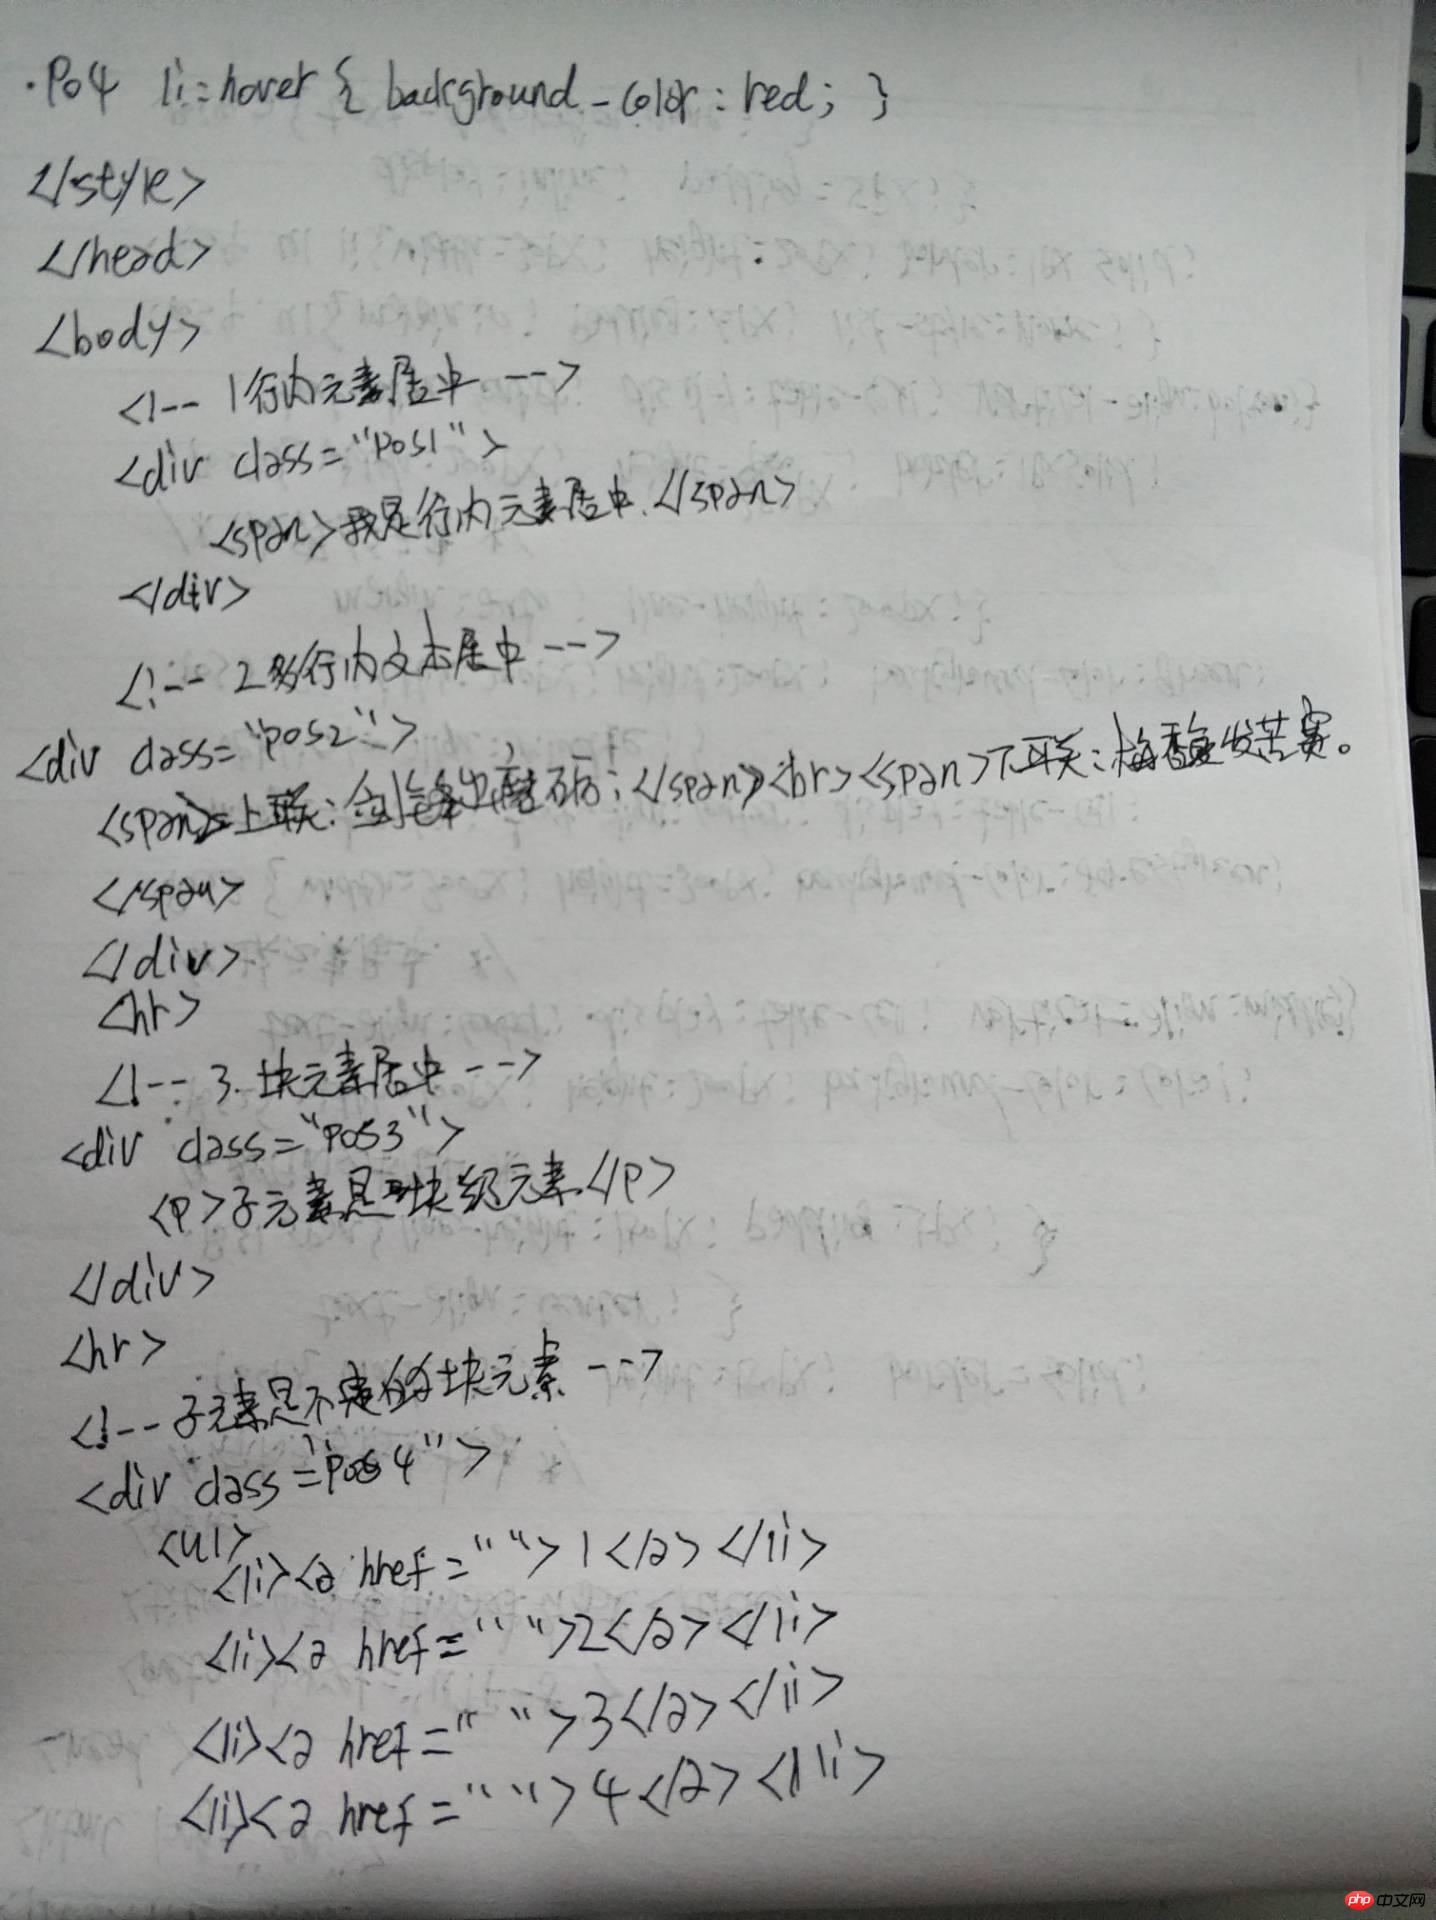 .Po4 li:hover { background-color:red; }
</style>
</head>
<body>
<!-- 1行内元素居中 -->
<div class="pos1">
<span>我是行内元素居中.</span>
</div>
<!-- 2多行内文本居中 -->
<div class="pos2">
<span>上联:剑锋出磨砺;</span><br><span>下联:梅香发苦寒。
</span>
</div>
<hr>
<!-- 3.块元素居中 -->
<div class="pos3">
<p>子元素是块级元素</p>
</div>
<hr>
<!--子元素是不定的块元素 -->
<div class="pos4">
<ul>
<li><a href="">1</a></li>
<li><a href="">2</a></li>
<li><a href="">3</a></li>
<li><a href="">4</a></li>
php 中文网